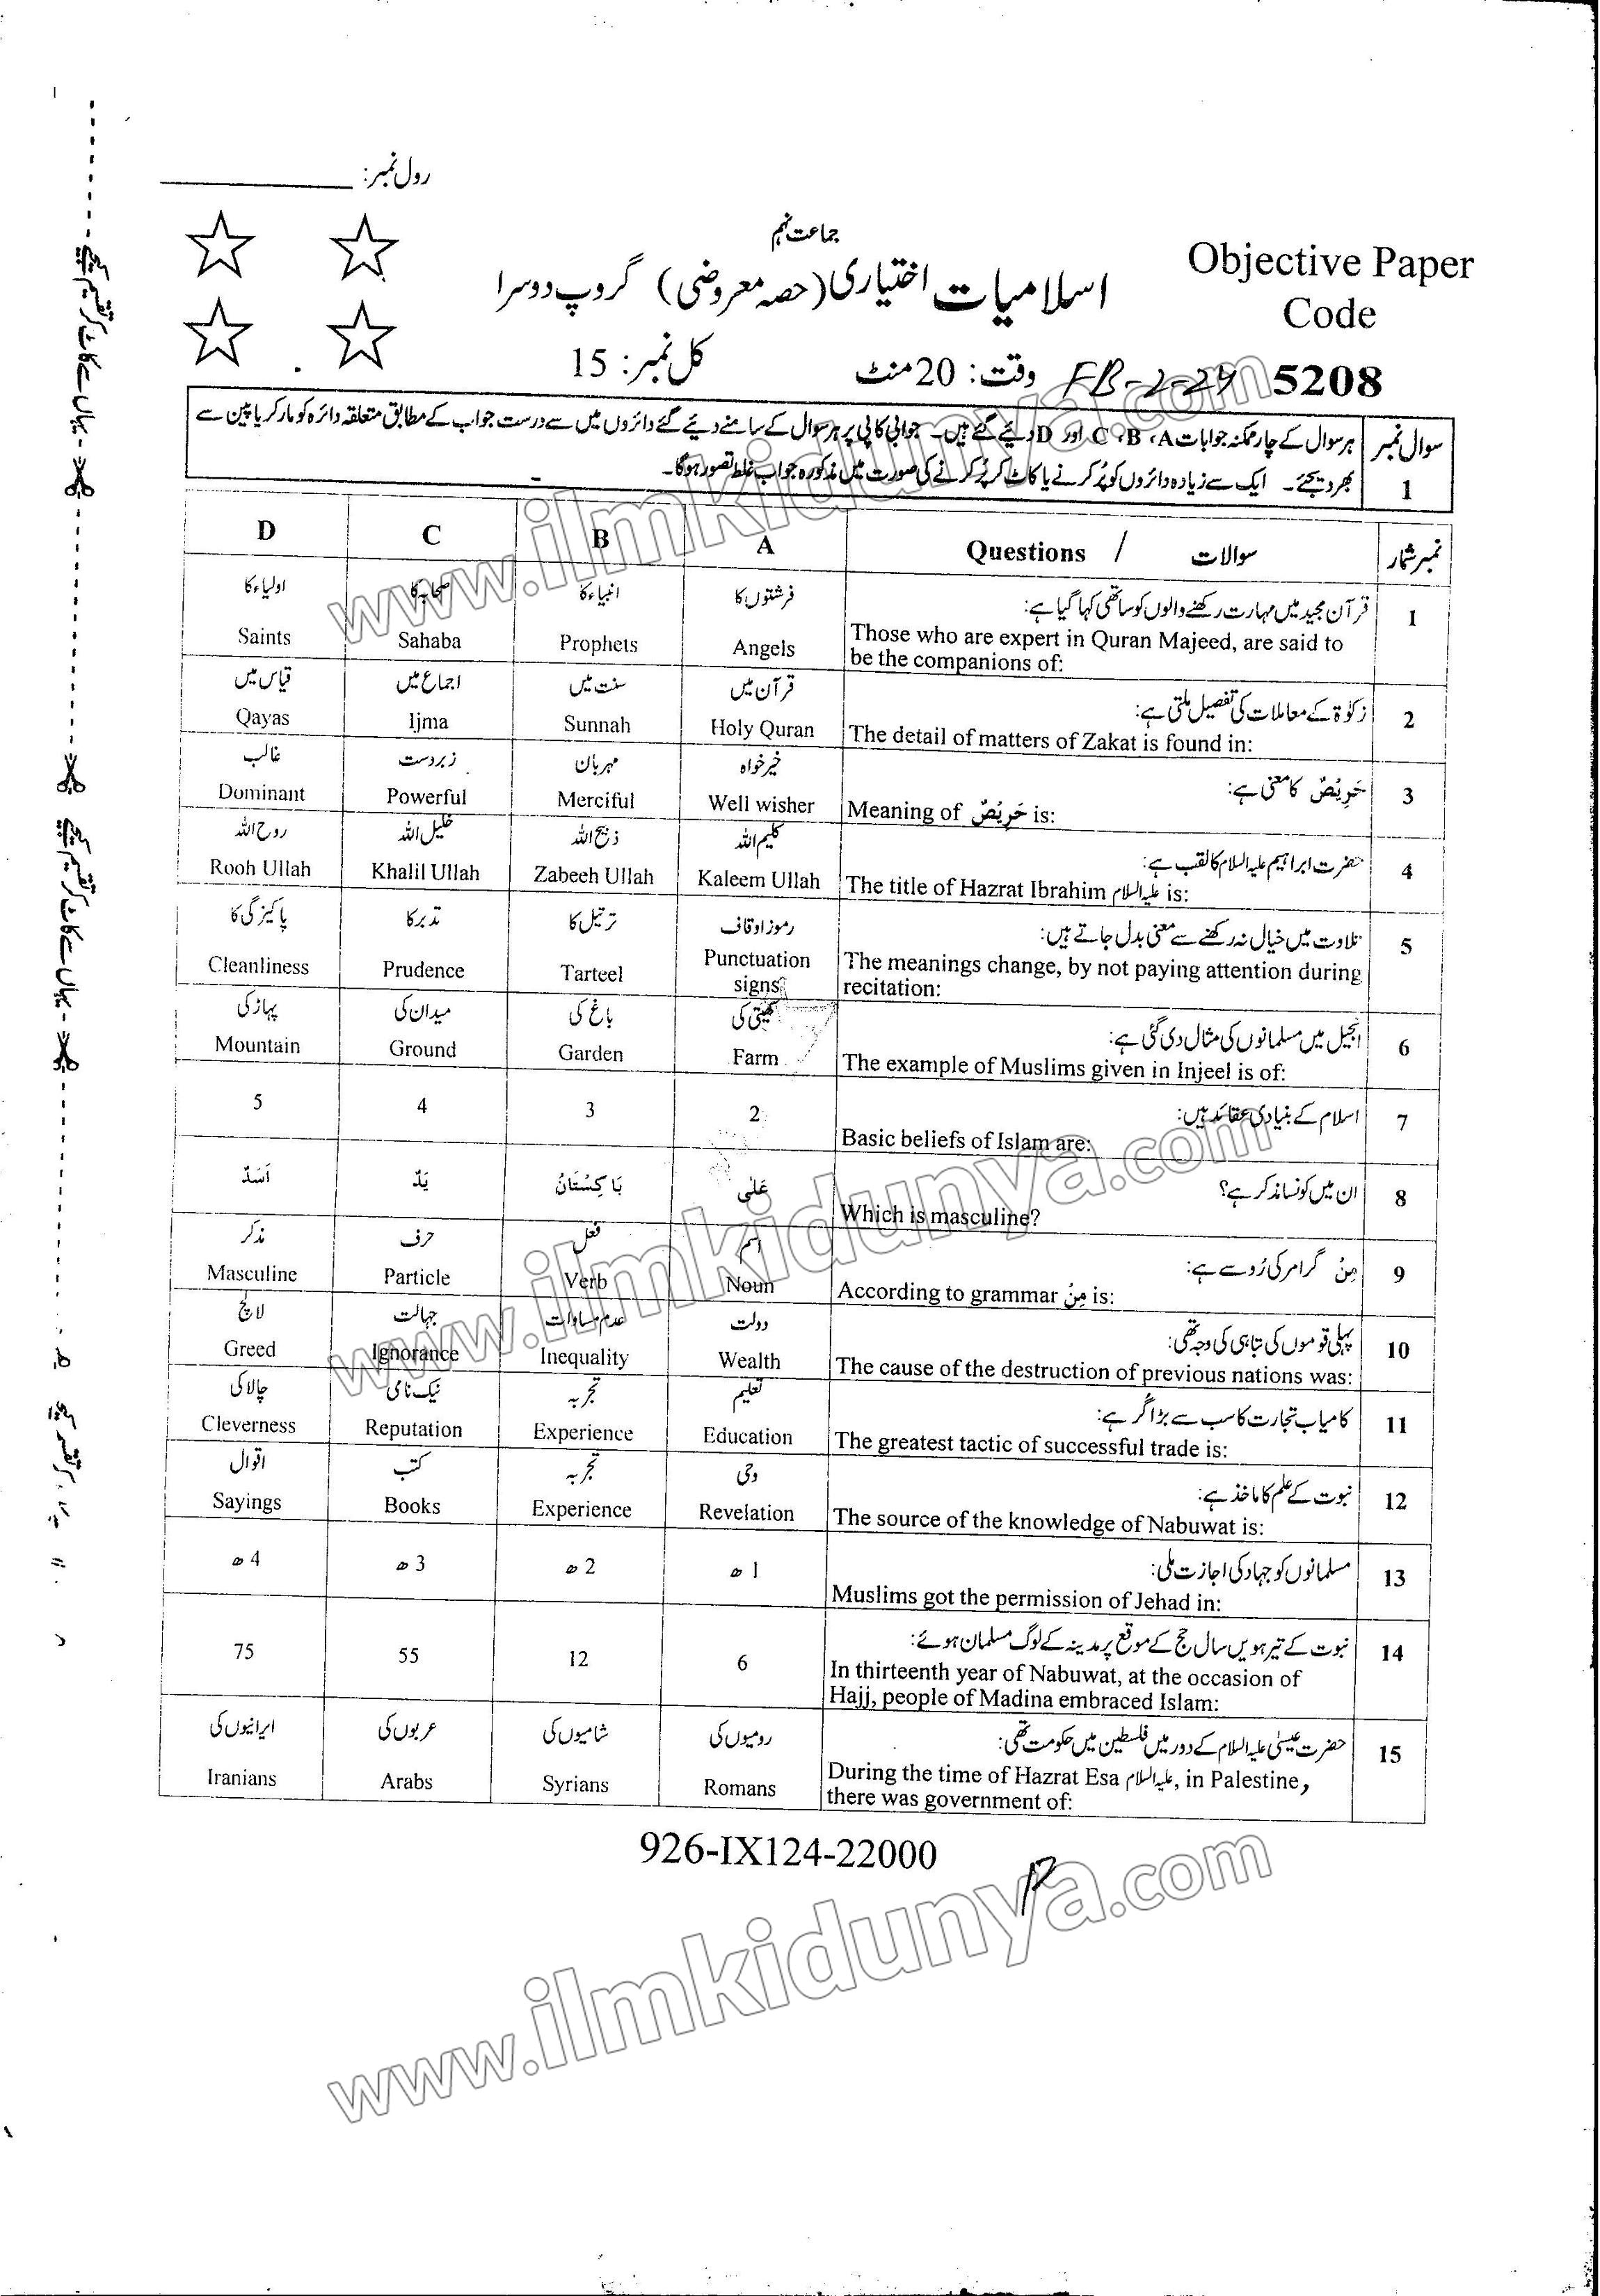 رول نمبر:
جماعت نہم
اسلامیات اختیاری (حصہ معروضی) گروپ دوسرا
Objective Paper
Code
5208
وقت: 20 منٹ
FB-2-24
کل نمبر: 15
سوال نمبر 1
ہر سوال کے چار ممکنہ جوابات A، B، C اور D دیئے گئے ہیں۔ جوابی کاپی پر ہر سوال کے سامنے دیئے گئے دائروں میں سے درست جواب کے مطابق متعلقہ دائرہ کو مارکر یا پین سے
بھر دیجئے۔ ایک سے زیادہ دائروں کو پُر کرنے یا کاٹ کر پُر کرنے کی صورت میں مذکورہ جواب غلط تصور ہوگا۔
نمبر شمار
سوالات / Questions
A
B
C
D
1
قرآن مجید میں مہارت رکھنے والوں کو ساتھی کہا گیا ہے:
Those who are expert in Quran Majeed, are said to
be the companions of:
فرشتوں کا
Angels
انبیاء کا
Prophets
صحابہ کا
Sahaba
اولیاء کا
Saints
2
زکوٰۃ کے معاملات کی تفصیل ملتی ہے:
The detail of matters of Zakat is found in:
قرآن میں
Holy Quran
سنت میں
Sunnah
اجماع میں
Ijma
قیاس میں
Qayas
3
حَرِیْصٌ کا معنی ہے:
Meaning of حَرِیْصٌ is:
خیر خواہ
Well wisher
مہربان
Merciful
زبردست
Powerful
غالب
Dominant
4
حضرت ابراہیم علیہ السلام کا لقب ہے:
The title of Hazrat Ibrahim علیہ السلام is:
کلیم اللہ
Kaleem Ullah
ذبیح اللہ
Zabeeh Ullah
خلیل اللہ
Khalil Ullah
روح اللہ
Rooh Ullah
5
تلاوت میں خیال نہ رکھنے سے معنی بدل جاتے ہیں:
The meanings change, by not paying attention during
recitation:
رموز اوقاف
Punctuation
signs
ترتیل کا
Tarteel
تدبر کا
Prudence
پاکیزگی کا
Cleanliness
6
انجیل میں مسلمانوں کی مثال دی گئی ہے:
The example of Muslims given in Injeel is of:
کھیتی کی
Farm
باغ کی
Garden
میدان کی
Ground
پہاڑ کی
Mountain
7
اسلام کے بنیادی عقائد ہیں:
Basic beliefs of Islam are:
2
3
4
5
8
ان میں کونسا مذکر ہے؟
Which is masculine?
عَلٰی
بَاکِسْتَانُ
یَدٌ
اَسَدٌ
9
مِنْ گرامر کی رُو سے ہے:
According to grammar مِنْ is:
اسم
Noun
فعل
Verb
حرف
Particle
مذکر
Masculine
10
پہلی قوموں کی تباہی کی وجہ تھی:
The cause of the destruction of previous nations was:
دولت
Wealth
عدم مساوات
Inequality
جہالت
Ignorance
لالچ
Greed
11
کامیاب تجارت کا سب سے بڑا گُر ہے:
The greatest tactic of successful trade is:
تعلیم
Education
تجربہ
Experience
نیک نامی
Reputation
چالاکی
Cleverness
12
نبوت کے علم کا ماخذ ہے:
The source of the knowledge of Nabuwat is:
وحی
Revelation
تجربہ
Experience
کتب
Books
اقوال
Sayings
13
مسلمانوں کو جہاد کی اجازت ملی:
Muslims got the permission of Jehad in:
1 ھ
2 ھ
3 ھ
4 ھ
14
نبوت کے تیرہویں سال حج کے موقع پر مدینہ کے لوگ مسلمان ہوئے:
In thirteenth year of Nabuwat, at the occasion of
Hajj, people of Madina embraced Islam:
6
12
55
75
15
حضرت عیسیٰ علیہ السلام کے دور میں فلسطین میں حکومت تھی:
During the time of Hazrat Esa علیہ السلام, in Palestine,
there was government of:
رومیوں کی
Romans
شامیوں کی
Syrians
عربوں کی
Arabs
ایرانیوں کی
Iranians
926-IX124-22000
یہاں سے کاٹ کر تقسیم کیجئے
یہاں سے کاٹ کر تقسیم کیجئے
www.ilmkidunya.com
www.ilmkidunya.com
www.ilmkidunya.com